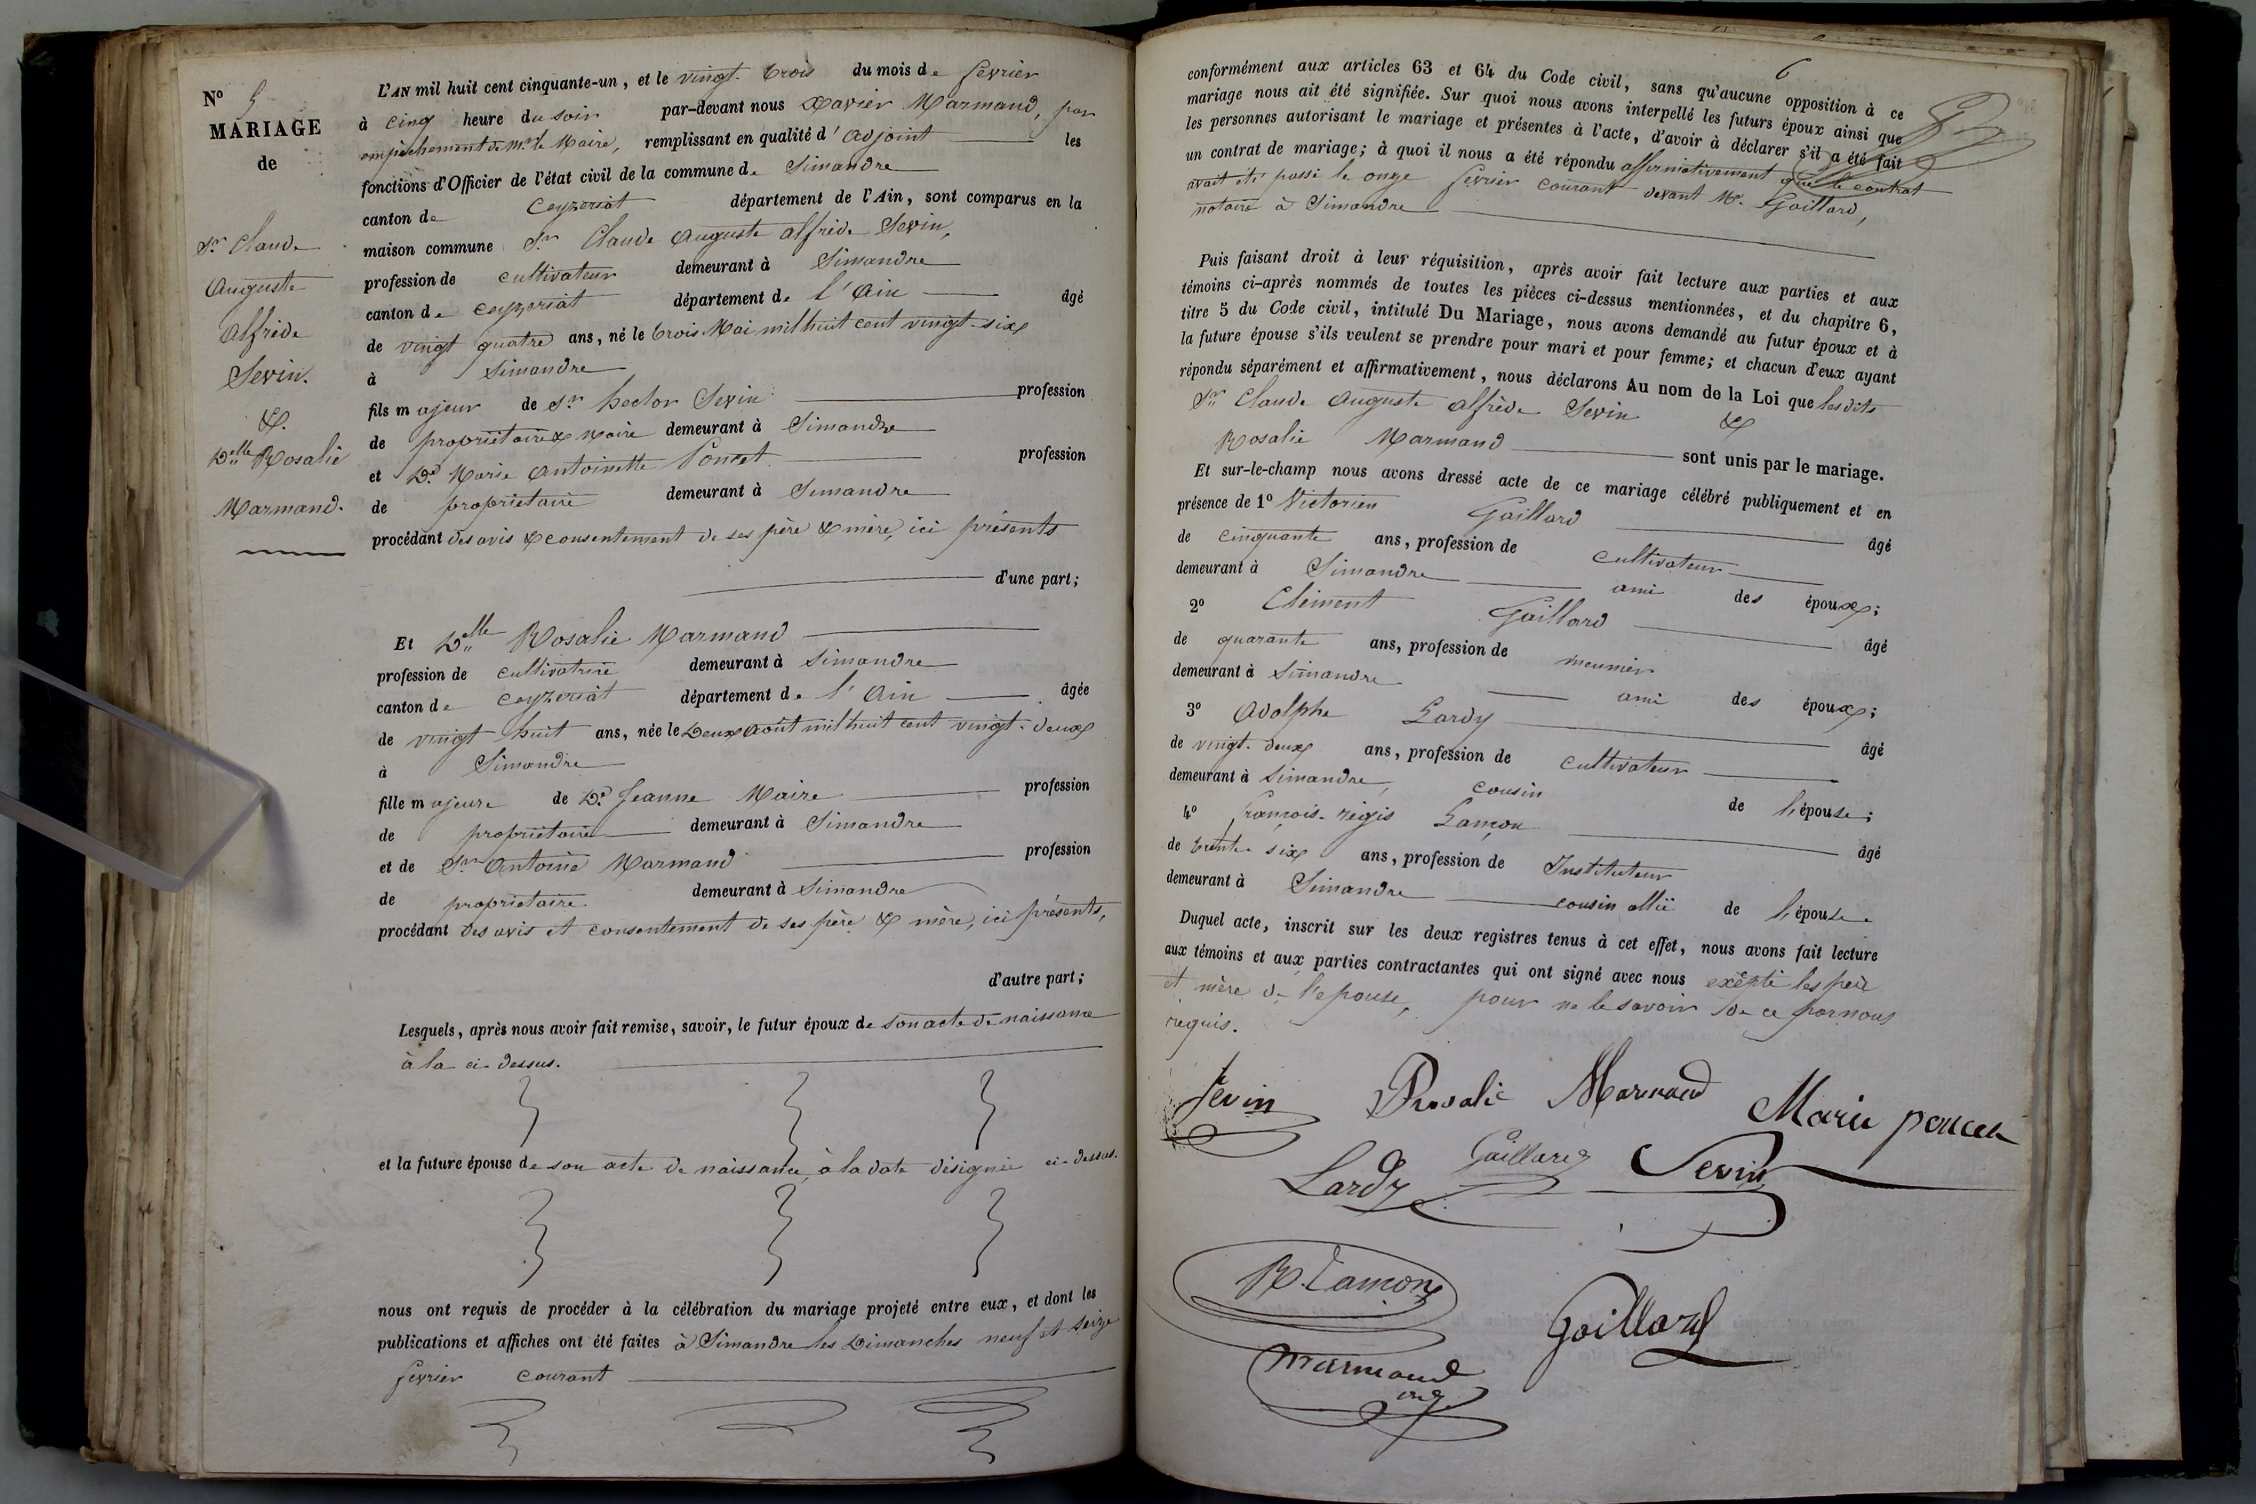 N° 5
MARIAGE
de
Sr Claude
Auguste
Alfrède
Sevin.
&
Delle Rosalie
Marmand.
L'AN mil huit cent cinquante-un, et le vingt-trois du mois de février
à cinq heure du soir par-devant nous Xavier Marmand, par
empêchement de Mr le Maire, remplissant en qualité d'adjoint les
fonctions d'Officier de l'état civil de la commune de Simandre
canton de Ceyzeriat département de l'Ain, sont comparus en la
maison commune Sr Claude Auguste Alfrède Sevin,
profession de cultivateur demeurant à Simandre
canton de Ceyzeriat département de l'Ain âgé
de vingt quatre ans, né le trois Mai mil huit cent vingt-six
à Simandre
fils majeur de Sr hector Sevin profession
de propriétaire & maire demeurant à Simandre
et De Marie Antoinette Poncet profession
de propriétaire demeurant à Simandre
procédant des avis & consentement de ses père & mère, ici présents
d'une part;
Et Delle Rosalie Marmand
profession de cultivatrice demeurant à Simandre
canton de Ceyzeriat département de l'Ain âgée
de vingt huit ans, née le deux août mil huit cent vingt-deux
à Simandre
fille majeure de De Jeanne Maire profession
de propriétaire demeurant à Simandre
et de Sr Antoine Marmand profession
de propriétaire demeurant à Simandre
procédant des avis et consentement de ses père & mère, ici présents,
d'autre part;
Lesquels, après nous avoir fait remise, savoir, le futur époux de son acte de naissance
à la ci-dessus.
et la future épouse de son acte de naissance, à la date désignée ci-dessus.
nous ont requis de procéder à la célébration du mariage projeté entre eux, et dont les
publications et affiches ont été faites à Simandre les Dimanches neuf et seize
février courant
6
conformément aux articles 63 et 64 du Code civil, sans qu'aucune opposition à ce
mariage nous ait été signifiée. Sur quoi nous avons interpellé les futurs époux ainsi que
les personnes autorisant le mariage et présentes à l'acte, d'avoir à déclarer s'il a été fait
un contrat de mariage; à quoi il nous a été répondu affirmativement que le contrat
avait été passé le onze février courant devant Me. Gaillard,
notaire à Simandre
Puis faisant droit à leur réquisition, après avoir fait lecture aux parties et aux
témoins ci-après nommés de toutes les pièces ci-dessus mentionnées, et du chapitre 6,
titre 5 du Code civil, intitulé Du Mariage, nous avons demandé au futur époux et à
la future épouse s'ils veulent se prendre pour mari et pour femme; et chacun d'eux ayant
répondu séparément et affirmativement, nous déclarons Au nom de la Loi que les dits
Sr Claude Auguste Alfrède Sevin &
Rosalie Marmand sont unis par le mariage.
Et sur-le-champ nous avons dressé acte de ce mariage célébré publiquement et en
présence de 1° Victorien Gaillard âgé
de cinquante ans, profession de cultivateur
demeurant à Simandre ami des époux;
2° Clément Gaillard âgé
de quarante ans, profession de meunier
demeurant à Simandre ami des époux;
3° Adolphe Lardy âgé
de vingt-deux ans, profession de cultivateur
demeurant à Simandre, cousin de l'épouse;
4° françois-régis Lamon âgé
de trente six ans, profession de Instituteur
demeurant à Simandre cousin allié de l'épouse.
Duquel acte, inscrit sur les deux registres tenus à cet effet, nous avons fait lecture
aux témoins et aux parties contractantes qui ont signé avec nous exépté les père
et mère de l'épouse, pour ne le savoir de ce par nous
requis.
Sevin Rosalie Marmand Marie poncet
Lardy Gaillard Sevin
R. Lamon Gaillard
Marmand